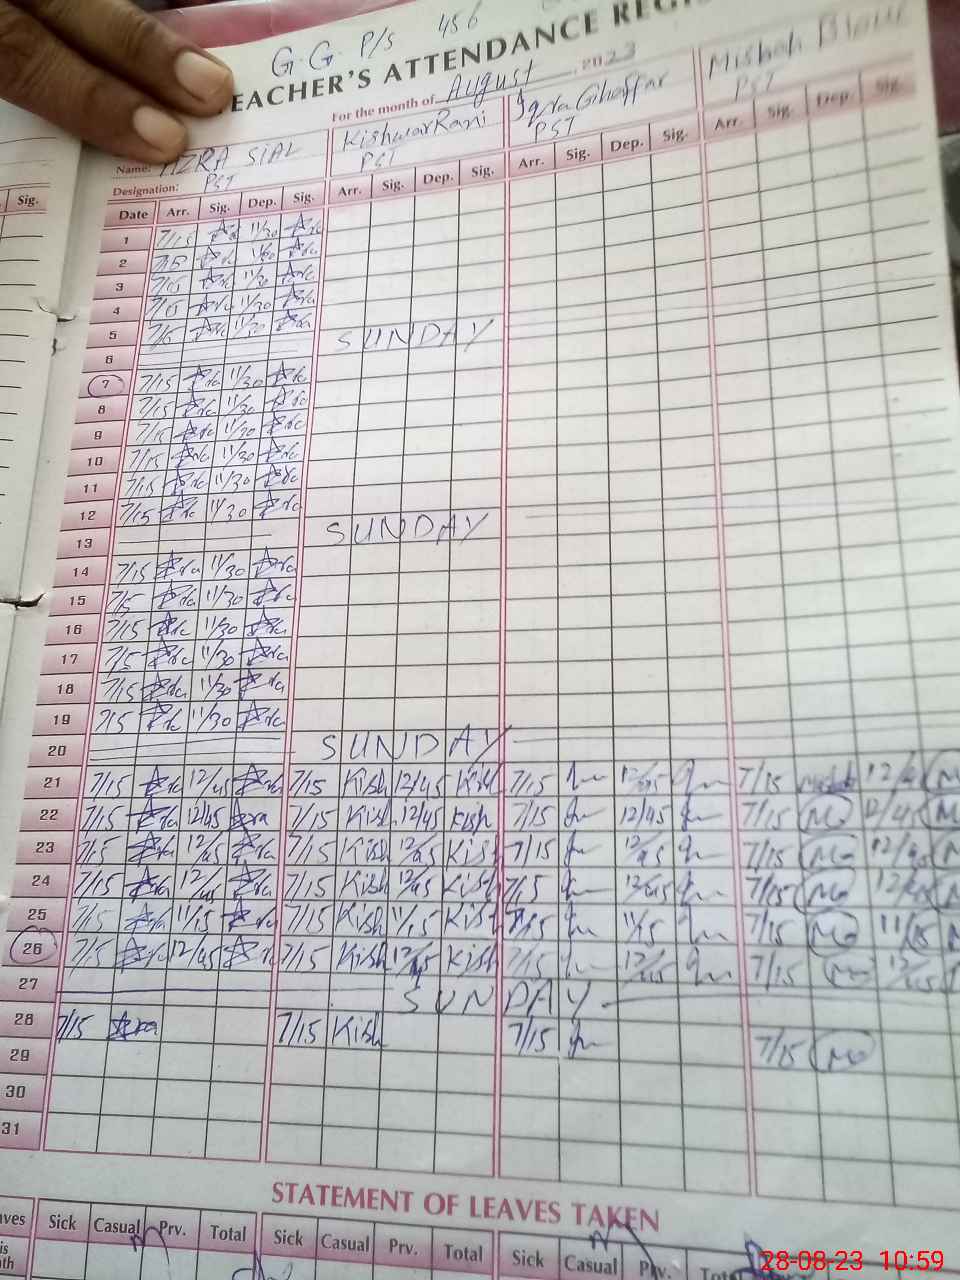 G.G. P/S 456
TEACHER'S ATTENDANCE REGIS
For the month of August, 2023
Name: AZRA SIAL Kishwar Rani Iqra Ghaffar Misbah
Designation: PST PST PST PST
Sig. Date Arr. Sig. Dep. Sig. Arr. Sig. Dep. Sig. Arr. Sig. Dep. Sig. Arr. Sig. Dep. Sig.
1 7/15 11/30
2 7/15 11/30
3 7/15 11/30
4 7/15 11/30
5 7/15 11/30
6 SUNDAY
7 7/15 11/30
8 7/15 11/30
9 7/15 11/30
10 7/15 11/30
11 7/15 11/30
12 7/15 11/30
13 SUNDAY
14 7/15 11/30
15 7/15 11/30
16 7/15 11/30
17 7/15 11/30
18 7/15 11/30
19 7/15 11/30
20 SUNDAY
21 7/15 12/45 7/15 Kish 12/45 Kish 7/15 12/45 7/15 12/4
22 7/15 12/45 7/15 Kish 12/45 Kish 7/15 12/45 7/15 12/45
23 7/15 12/45 7/15 Kish 12/45 Kish 7/15 12/45 7/15 12/45
24 7/15 12/45 7/15 Kish 12/45 Kish 7/15 12/45 7/15 12/45
25 7/15 11/15 7/15 Kish 11/15 Kish 7/15 11/15 7/15 11/15
26 7/15 12/45 7/15 Kish 12/45 Kish 7/15 12/45 7/15 12/45
27 SUNDAY
28 7/15 7/15 Kish 7/15 7/15
29
30
31
STATEMENT OF LEAVES TAKEN
aves Sick Casual Prv. Total Sick Casual Prv. Total Sick Casual Prv. Tot
is
nth
28-08-23 10:59